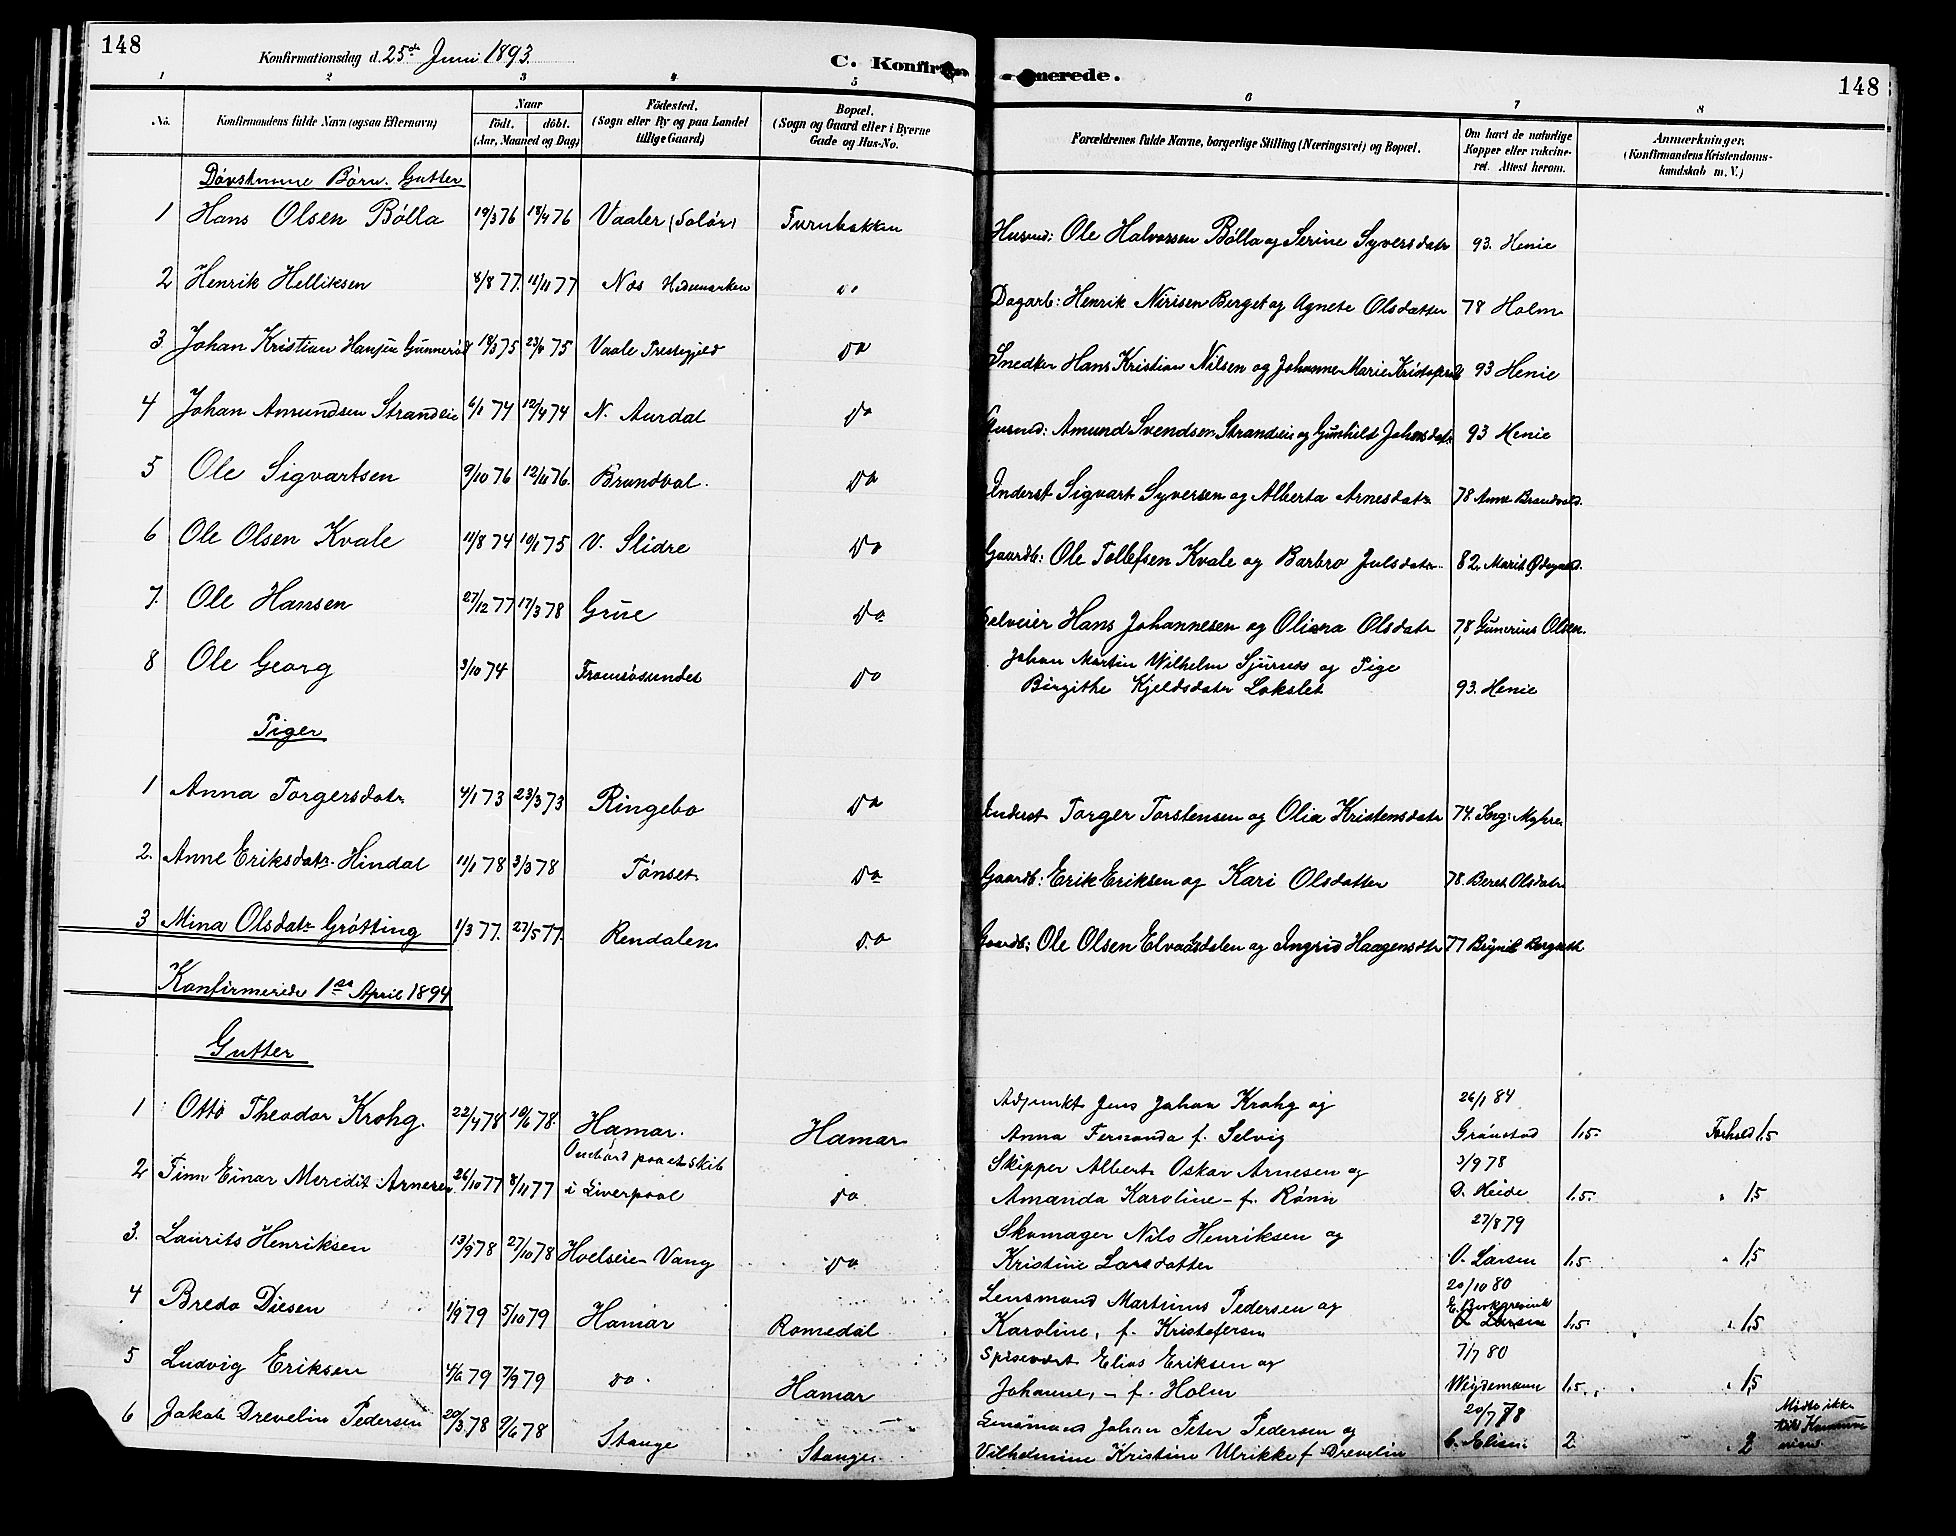 148
Konfirmationsdag d. 25de Juni 1893.
C. Konfirmerede.
148
1 2 3 4 5 6 7 8
No.
Konfirmandens fulde Navn (ogsaa Efternavn)
Naar
født. døbt.
(Aar, Maaned og Dag)
Fødested.
(Sogn eller By og paa Landet
tillige Gaard)
Bopæl.
(Sogn og Gaard eller i Byerne
Gade og Hus-No.
Forældrenes fulde Navne, borgerlige Stilling (Næringsvei) og Bopæl.
Om havt de naturlige
Kopper eller vakcine-
ret. Attest herom.
Anmærkninger.
(Konfirmandens Kristendoms-
kundskab m. V.)
Døvstumme Børn. Gutter
1 Hans Olsen Bølla 19/3 76 18/4 76 Vaaler (Solør) Furubakken Husmd: Ole Halvorsen Bølla og Serine Syversdatr 93. Henie
2 Henrik Helliksen 8/8 77. 11/11 77 Nes Hedemarken do Dagarb: Henrik Nirisen Berget og Agnete Olsdatter 78 Holm
3 Johan Kristian Hansen Gunnerød 18/3 75 75 Vaale Prestegjeld do Snedker Hans Kristian Nilsen og Johanne Marie 93 Henie
4 Johan Amundsen Strandeie 6/1 74 12/4 74 N. Aurdal do Husmd: Amund Svendsen Strandeie og Gunhild Johnsdatr 93 Henie
5 Ole Sigvartsen 9/10 76 12/11 76. Brandval. do Inderst Sigvart Syversen og Alberta Arnesdatr 78 Anne Brandvold.
6 Ole Olsen Kvale 11/8 74 10/1 75 V. Slidre do Gaardb: Ole Tollefsen Kvale og Barbro Julsdatr. 82. Marit Ødegaard.
7. Ole Hansen 27/12 77 17/3 78 Grue do Selveier Hans Johannesen og Oliera Olsdatr 78, Gunerius Olsen.
8 Ole Georg 3/10 74 Tromsøsundet do Johan Martin Wilhelm Sjurnes og Pige
Birgithe Kjeldsdatr Lokslet 93. Henie
Piger
1 Anna Torgersdatr 4/1 73 23/3 73 Ringebo do Inderst Torger Torstensen og Olia Kristensdatr 74. Jørg: Myhre.
2. Anne Eriksdatr Hindal 11/1 78 3/3 78 Tønset do Gaardb: Erik Eriksen og Kari Olsdatter 78. Beret Olsdatr
3 Mina Olsdatr Grøtting 1/3 77. 27/5 77. Rendalen do Gaardb: Ole Olsen Elvaasdalen og Ingrid Haagensdtr 77 Brynil Bergset
Konfirmerede 1ste April 1894
Gutter
1 Otto Theodor Krohg. 22/4 78 10/6 78. Hamar. Hamar Adjunkt Jens Johan Krohg og
Anna Fernanda f. Selvig 26/1 84
Grønstad 1,5. Forhold 1,5
2 Finn Einar Meredit Arnesen 26/10 77 8/11 77 Ombord paa et skib
i Liverpool do Skipper Albert Oskar Arnesen og
Amanda Karoline - f. Rønn 3/9 78
D. Heide 1,5. " 1,5
3. Laurits Henriksen 13/9 78 27/10 78 Hoelseie Vang do Skomager Nils Henriksen og
Kristine Larsdatter 27/8 79
O. Larsen 1,5 " 1,5
4 Bredo Diesen 1/9 79 5/10 79 Hamar Romedal Lensmand Martinus Pedersen og
Karoline, f. Kristofersen 20/10 80
E. Borkgrevink
O Larsen 1,5. " 1,5
5 Ludvig Eriksen 4/6 79 7/9 79 do. Hamar Spisevært Elias Eriksen og
Johanne, - f. Holm 7/7 80
Weydemann 1,5. " 1,5
6 Jakob Drevelin Pedersen 20/3 78 9/6 78 Stange Stange Lensmand Johan Peter Pedersen og
Vilhelmine Kristine Ulrikke f Drevelin 20/7 78
C. Elisen 2 " 2 Mødte ikke